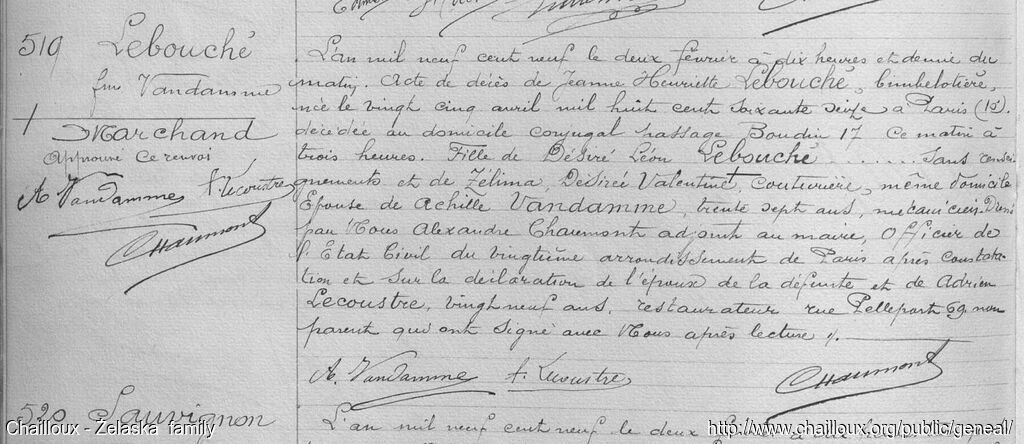 519
Lebouché
fme Vandamme
+
Marchand
Approuvé ce renvoi
A Vandamme A Lecoustre
Chaumont
L'an mil neuf cent neuf le deux février à dix heures et demie du
matin, Acte de décès de Jeanne Henriette Lebouché, bimbelotière,
née le vingt cinq avril mil huit cent soixante seize à Paris (15).
décédée au domicile conjugal passage Boudin 17 ce matin à
trois heures. Fille de Désiré Léon Lebouché ........ Sans rensei
gnements et de Zélima, Désirée Valentine + couturière, même domicile
Epouse de Achille Vandamme, trente sept ans, mécanicien. Dressé
par Nous Alexandre Chaumont adjoint au maire, Officier de
l'Etat Civil du vingtième arrondissement de Paris après constata-
tion et sur la déclaration de l'époux de la défunte et de Adrien
Lecoustre, vingt neuf ans, restaurateur rue Pelleport 69 non
parent qui ont signé avec Nous après lecture /.
A. Vandamme A. Lecoustre Chaumont
520 Sauvignon
L'an mil neuf cent neuf le deux
Chailloux - Żelaska family
http://www.chailloux.org/public/geneal/